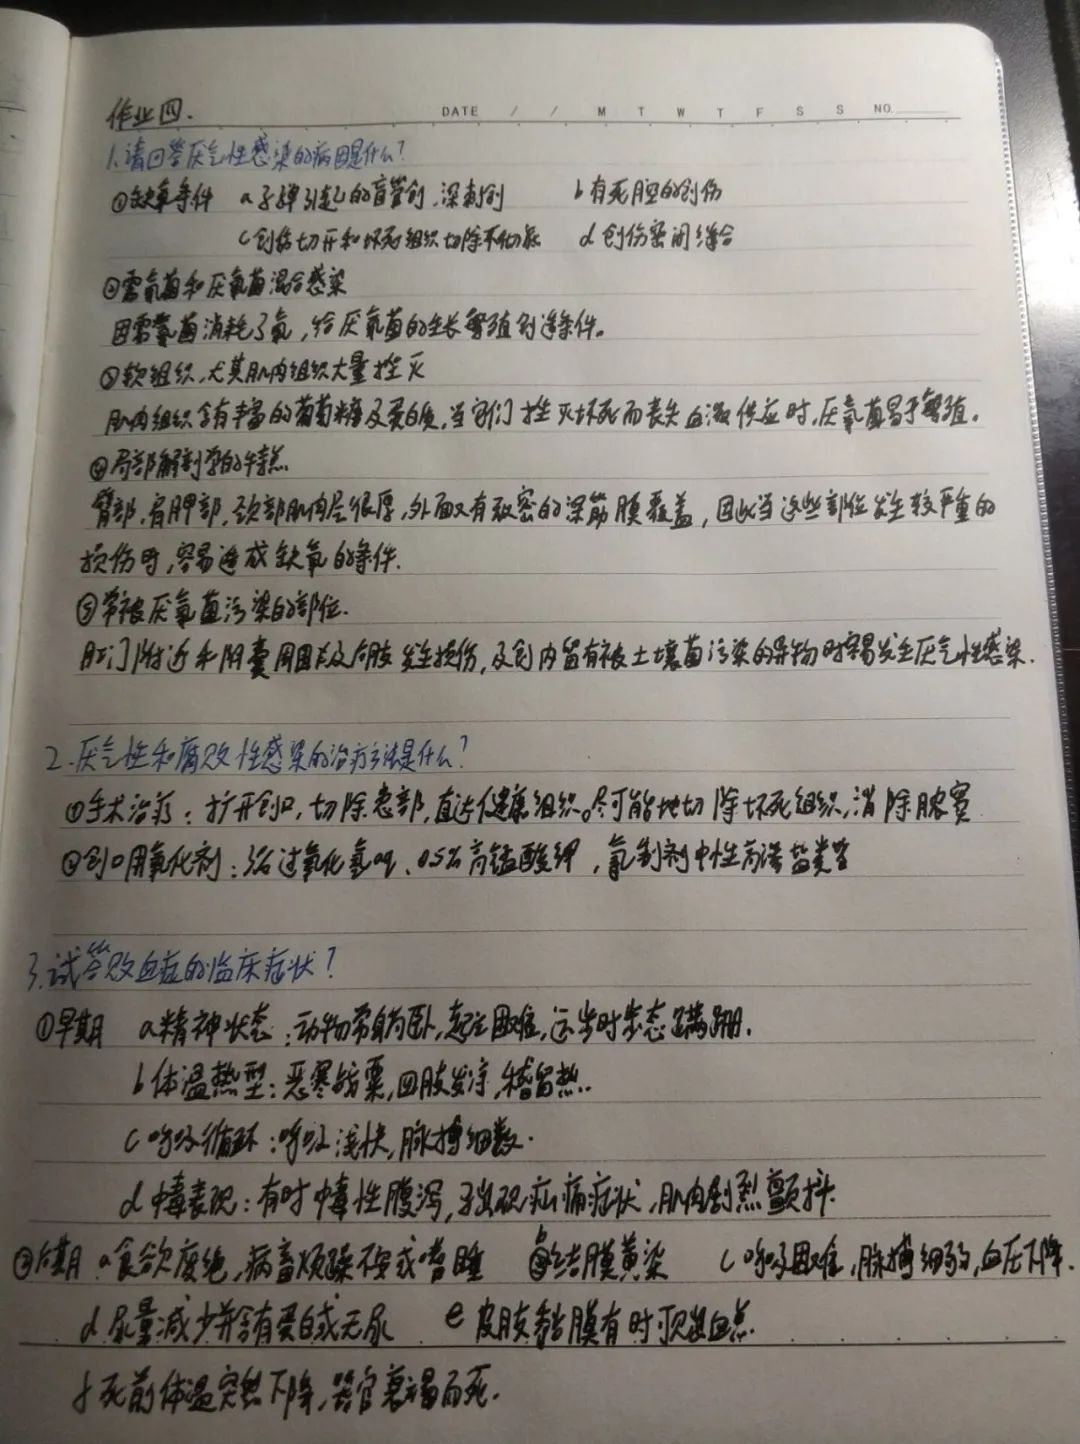 作业四.
DATE / / M T W T F S S NO.
1.请回答厌气性感染的病因是什么?
①缺氧条件 a子弹引起的盲管创、深刺创 b有死腔的创伤
c创伤切开和坏死组织切除不彻底 d创伤密闭缝合
②需氧菌和厌氧菌混合感染
因需氧菌消耗了氧,给厌氧菌的生长繁殖创造条件。
③软组织,尤其肌肉组织大量挫灭
肌肉组织含有丰富的葡萄糖及蛋白质,当它们挫灭坏死而丧失血液供应时,厌氧菌易于繁殖。
④局部解剖学的特点
臀部,肩胛部,颈部肌肉层很厚,外面又有致密的深筋膜覆盖,因此当这些部位发生较严重的
损伤时,容易造成缺氧的条件.
⑤常被厌氧菌污染的部位.
肛门附近和阴囊周围及后肢发生损伤,及创内留有被土壤菌污染的异物时容易发生厌气性感染.
2.厌气性和腐败性感染的治疗方法是什么?
①手术治疗:扩开创口,切除患部,直达健康组织。尽可能地切除坏死组织,消除脓窦
②创口用氧化剂:3%过氧化氢aq、0.5%高锰酸钾,氯制剂中性盐类等
3.试答败血症的临床症状?
①早期 a精神状态:动物常躺卧,起立困难,运步时步态蹒跚.
b体温热型:恶寒战栗,四肢发凉,稽留热.
c呼吸循环:呼吸浅快,脉搏细数.
d中毒表现:有时中毒性腹泻,疝痛症状,肌肉剧烈颤抖.
②后期 a食欲废绝,病畜烦躁不安或嗜睡 b结膜黄染 c呼吸困难,脉搏细弱,血压下降.
d尿量减少并含有蛋白或无尿 e皮肤黏膜有时可见出血点.
f死前体温突然下降,器官衰竭而死.